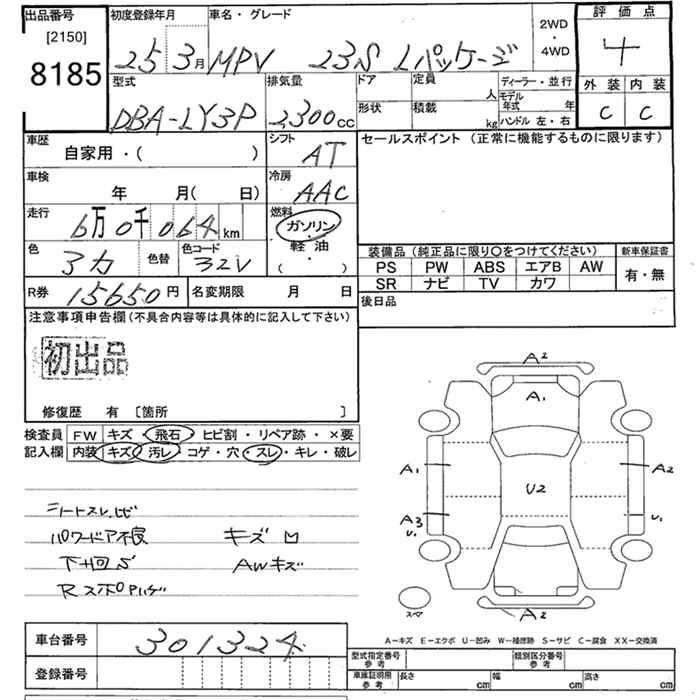 出品番号
[2150]
8185
初度登録年月
25 3月
車名・グレード
MPV 23S Lパッケージ
2WD
・
4WD
評価点
4
外装 内装
C C
型式
DBA-LY3P
排気量
2300cc
ドア
形状
定員
人
積載
kg
ディーラー・並行
モデル年式 年
ハンドル 左・右
車歴
自家用・( )
シフト
AT
セールスポイント (正常に機能するものに限ります)
車検
年 月( 日)
冷房
AAC
走行
6万0千064km
燃料
ガソリン
軽油
( )
色
色替
色コード
32V
装備品 (純正品に限り〇をつけてください)
新車保証書
PS PW ABS エアB AW
有・無
SR ナビ TV カワ
R券 15650円
名変期限 月 日
後日品
注意事項申告欄(不具合内容等は具体的に記入して下さい)
初出品
修復歴 有 〔箇所 〕
検査員記入欄
FW キズ・飛石・ヒビ割・リペア跡・×要
内装 キズ・汚レ・コゲ・穴・スレ・キレ・破レ
シートスレ
パワードア不良 キズ
下廻りS AWキズ
A2
A1
A1 U2 A2
A3 U1
U1
A2
A－キズ E－エクボ U－凹み W－補修跡 S－サビ C－腐食 XX－交換済
車台番号 301324
登録番号
型式指定番号 参考
類別区分番号 参考
車庫証明用 参考
長さ cm
幅 cm
高さ cm